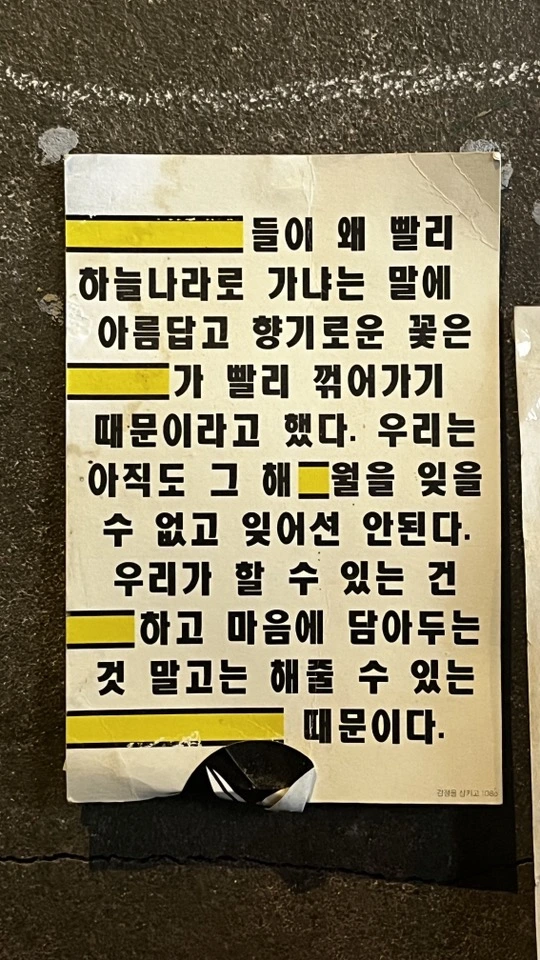 들이 왜 빨리
하늘나라로 가냐는 말에
아름답고 향기로운 꽃은
가 빨리 꺾어가기
때문이라고 했다. 우리는
아직도 그 해 월을 잊을
수 없고 잊어선 안된다.
우리가 할 수 있는 건
하고 마음에 담아두는
것 말고는 해줄 수 있는
때문이다.
삼키고